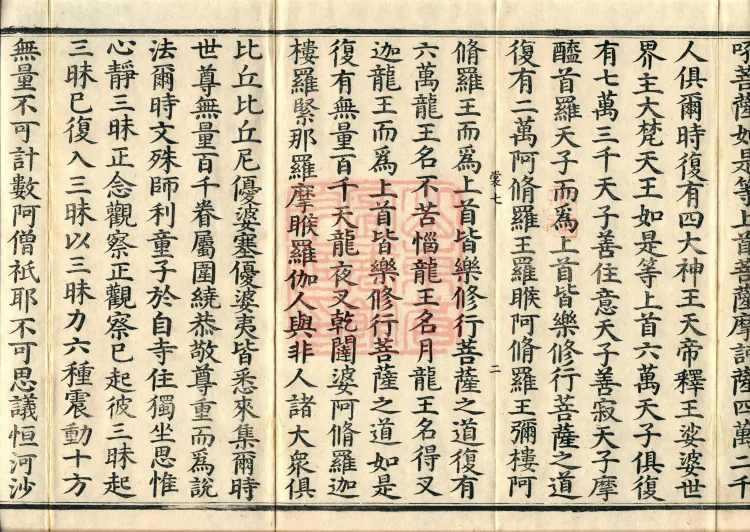 吼菩薩如是等上首菩薩摩訶薩四萬二千
人俱爾時復有四大神王天帝釋王娑婆世
界主大梵天王如是等上首六萬天子俱復
有七萬三千天子善住意天子善寂天子摩
醯首羅天子而爲上首皆樂修行菩薩之道
復有二萬阿脩羅王羅睺阿脩羅王彌樓阿
裳七 二
脩羅王而爲上首皆樂修行菩薩之道復有
六萬龍王名不苦惱龍王名月龍王名得叉
迦龍王而爲上首皆樂修行菩薩之道如是
復有無量百千天龍夜叉乾闥婆阿脩羅迦
樓羅緊那羅摩睺羅伽人與非人諸大衆俱
比丘比丘尼優婆塞優婆夷皆悉來集爾時
世尊無量百千眷屬圍繞恭敬尊重而爲說
法爾時文殊師利童子於自寺住獨坐思惟
心靜三昧正念觀察正觀察已起彼三昧起
三昧已復入三昧以三昧力六種震動十方
無量不可計數阿僧祇耶不可思議恒河沙